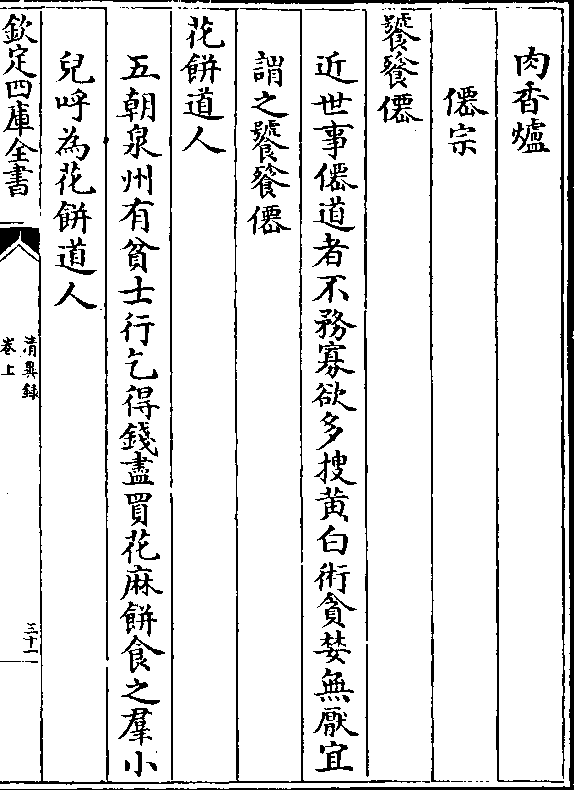 肉香爐
僊宗
饕餮僊
近世事僊道者不務寡欲多搜黄白術貪婪無厭宜
謂之饕餮僊
花餅道人
五朝泉州有貧士行乞得錢盡買花麻餅食之羣小
兒呼為花餅道人
欽定四庫全書
清異録
卷上
三十一